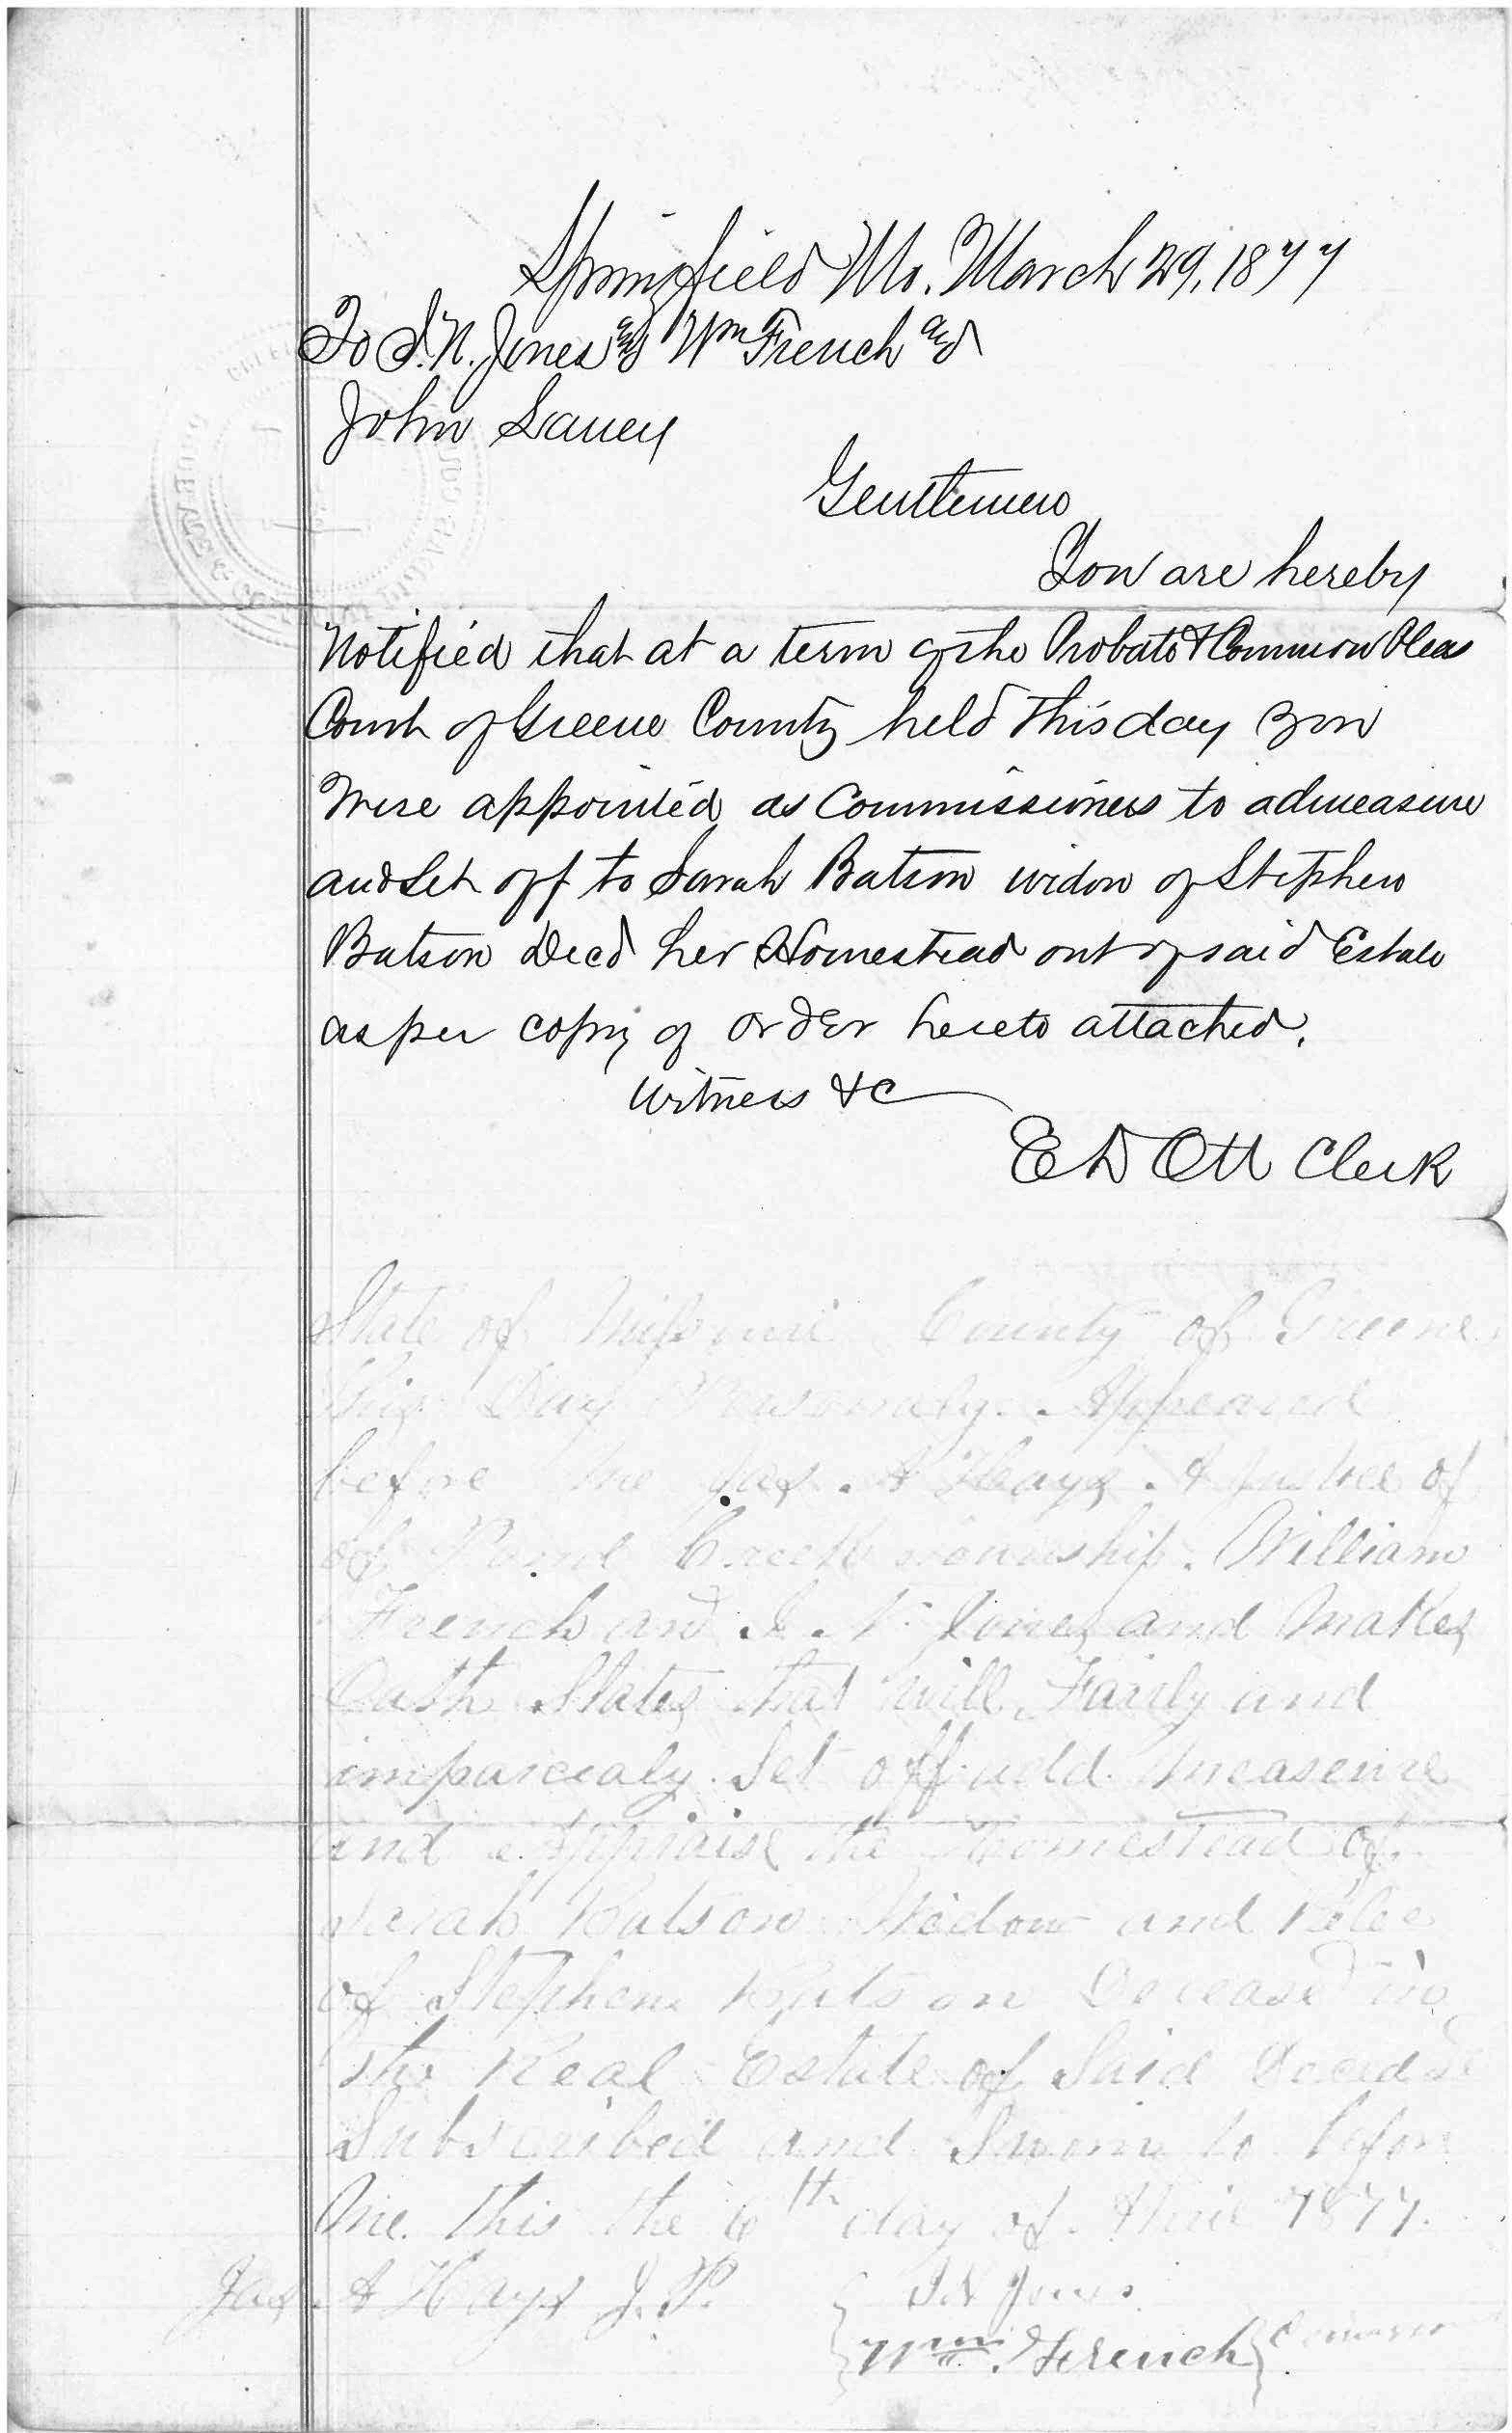 Springfield Mo. March 29, 1877
To I. N. Jones and Wm French and
John Laney
Gentlemen
You are hereby
Notified that at a term of the Probate & Common Pleas
Court of Greene County held this day you
Were appointed as Commissioners to admeasure
and Set off to Sarah Batson widow of Stephen
Batson Decd her Homestead out of said Estate
as per copy of order hereto attached.
Witness &c
E D Ott Clerk
State of Missouri County of Greene
this Day Personaly Appeared
before me Jas. A Hays A Justice of
of Pond Creek township. William
French and I. N. Jones and Makes
Oath States that will Fairly and
imparcialy Set off add measure
and Appraise the Homestead of
Sarah Batson Widow and
of Stephen Batson Deceased in
the Real Estate of Said
Subscribed and Sworn to before
Me. this the 6th day of 1877.
Jas. A Hays J. P. I N Jones
Wm. French